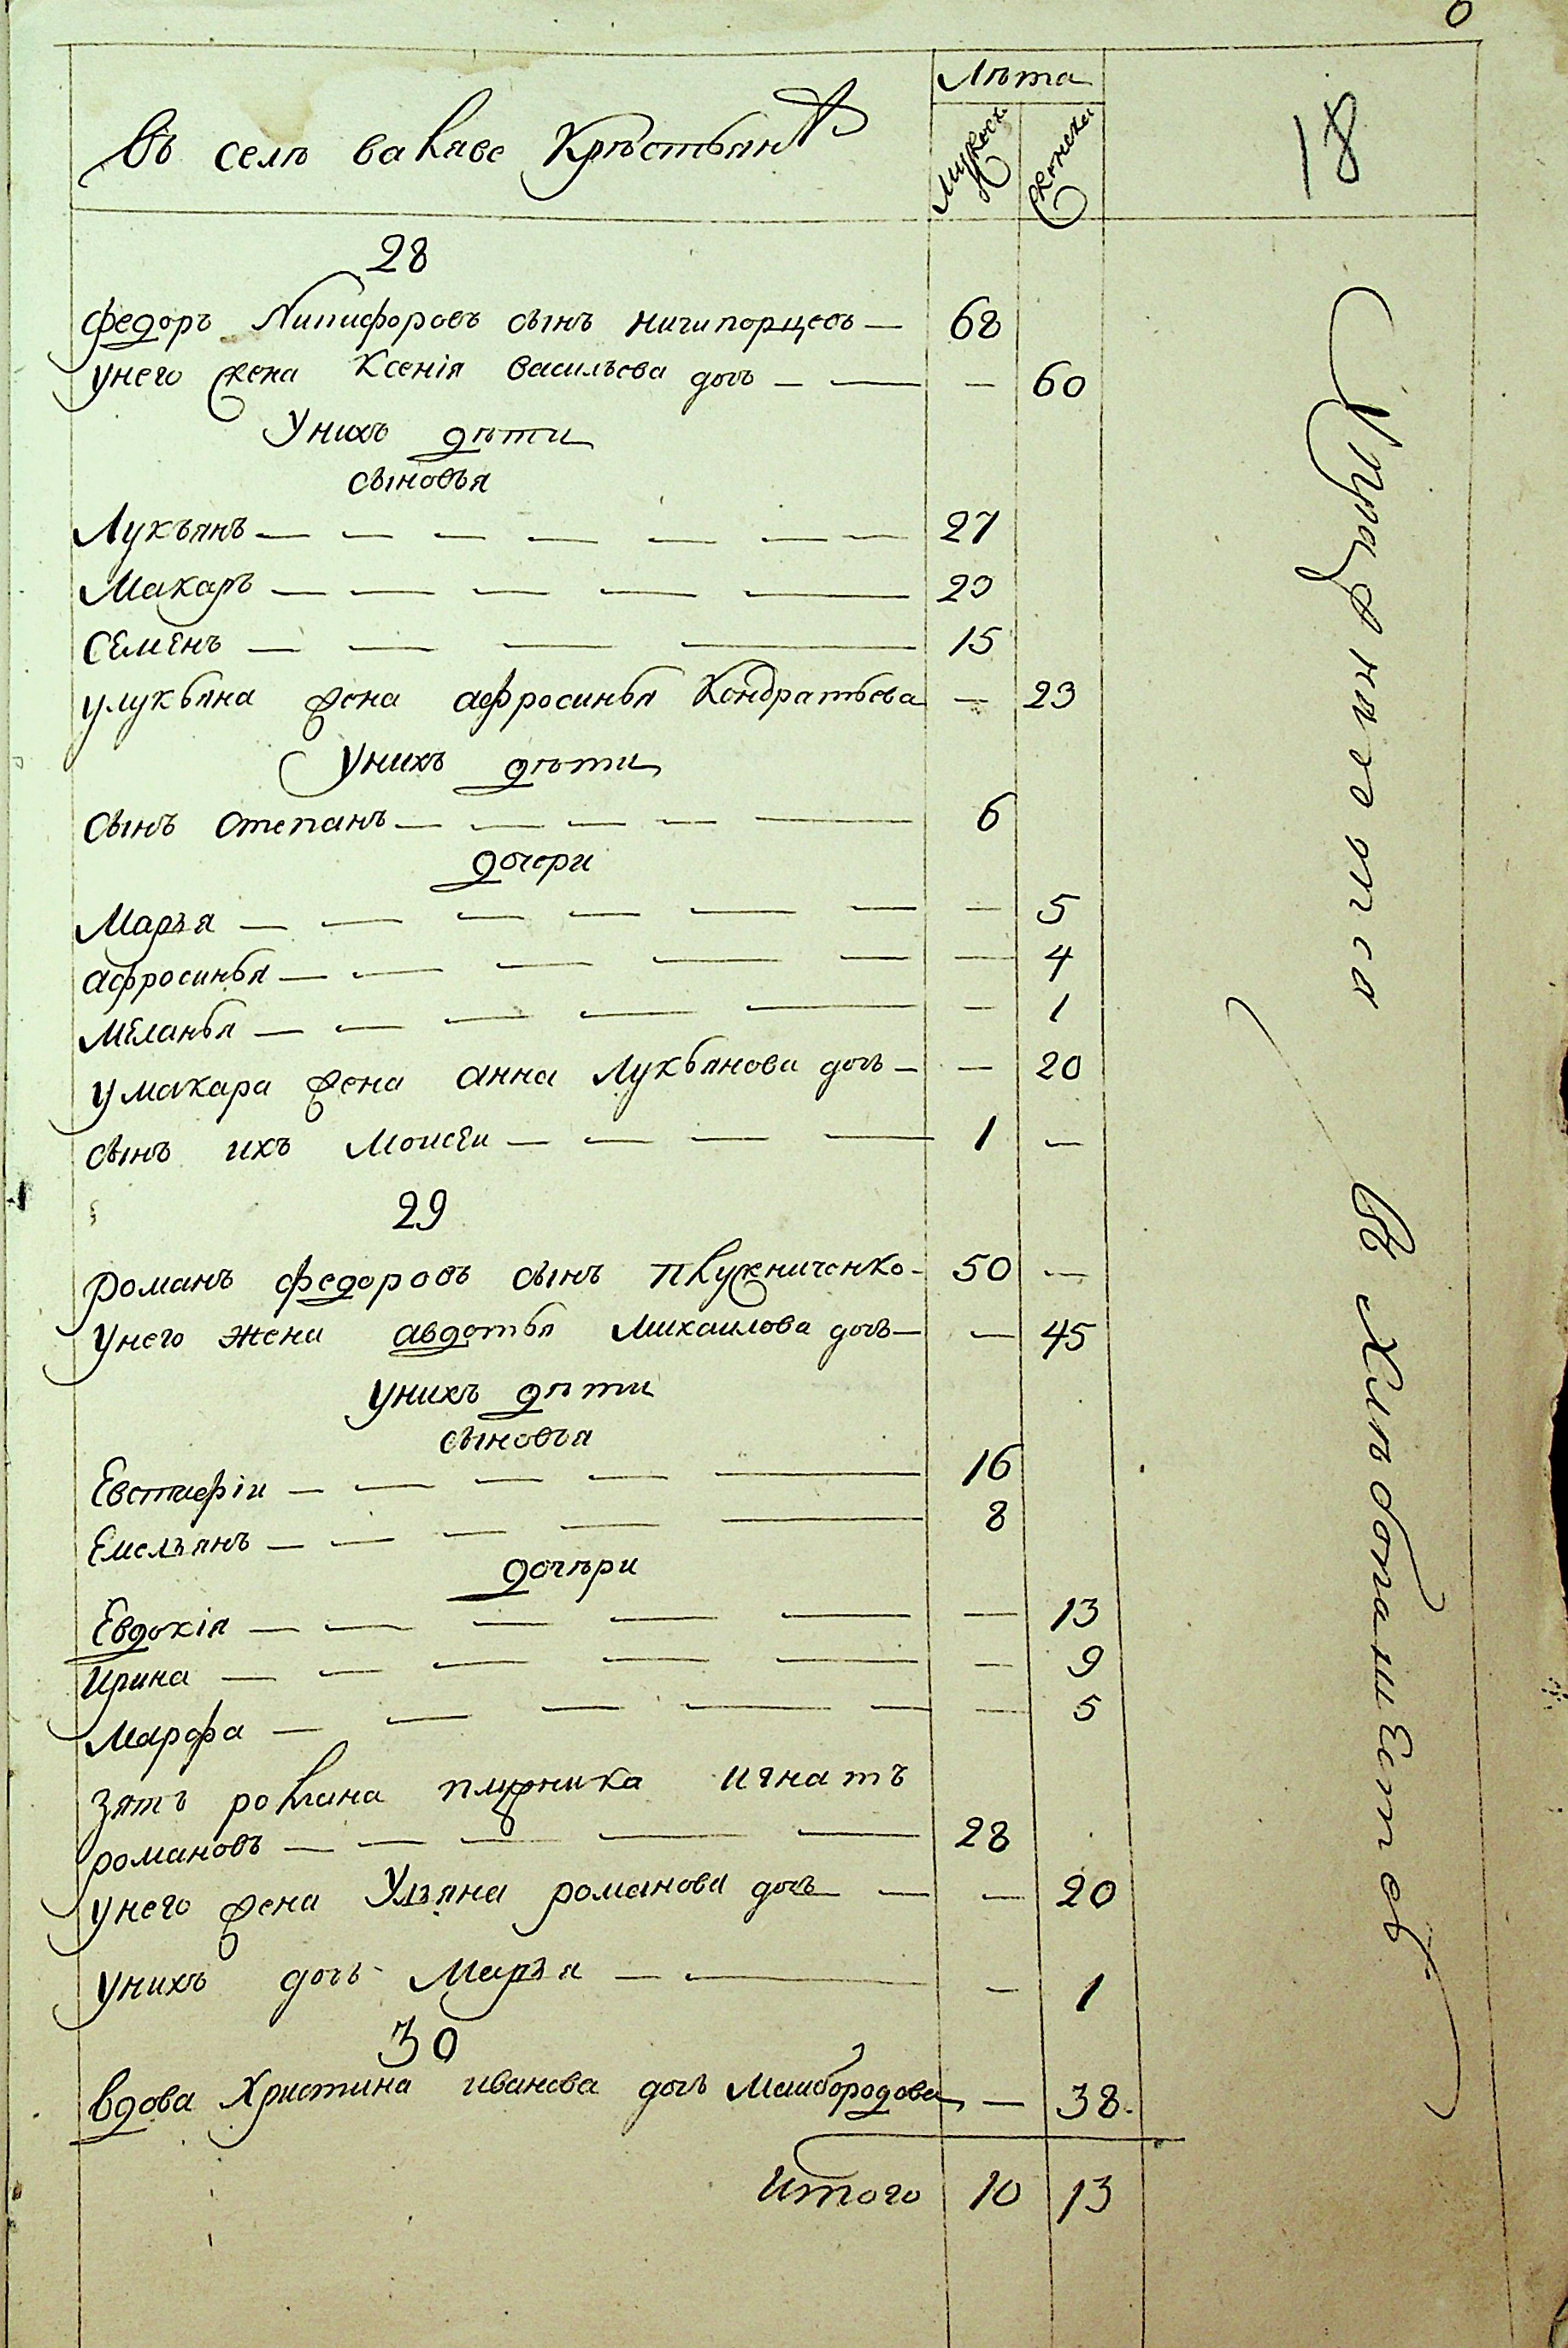 Лѣта
Въ селѣ Крестьянъ
мужеск женска
18
28
федоръ Никифоровъ сынъ ничипорцевъ — 68
унего жена Ксенія васильева дочь — — — 60
Унихъ дѣти
сыновья
Лукъянъ — — — — — — — 27
Макаръ — — — — — 23
Семенъ — — — — 15
улукьяна жена афросинья Кондратьева — 23
Унихъ дѣти
сынъ степанъ — — — — — 6
дочери
Маръя — — — — — — — 5
афросинья — — — — — — 4
меланья — — — — — — 1
умакара жена анна Лукьянова дочь — — 20
сынъ ихъ Моисеи — — — — 1 —
29
романъ федоровъ сынъ плужниченко — 50 —
Унего жена авдотья михаилова дочь — — 45
унихъ дѣти
сыновъя
Евстиофіи — — — — — 16
Емелъянъ — — — — — 8
дочѣри
Евдокія — — — — — — 13
ирина — — — — — — 9
Марфа — — — — — — 5
зятъ романа плужника игнатъ
романовъ — — — — — 28
унего жена Улъяна романова дочь — — 20
унихъ дочь Маръя — — — 1
30
вдова Христина иванова дочь Маибородова — 38
итого 10 13
Упражняются
в хлѣбопашестве